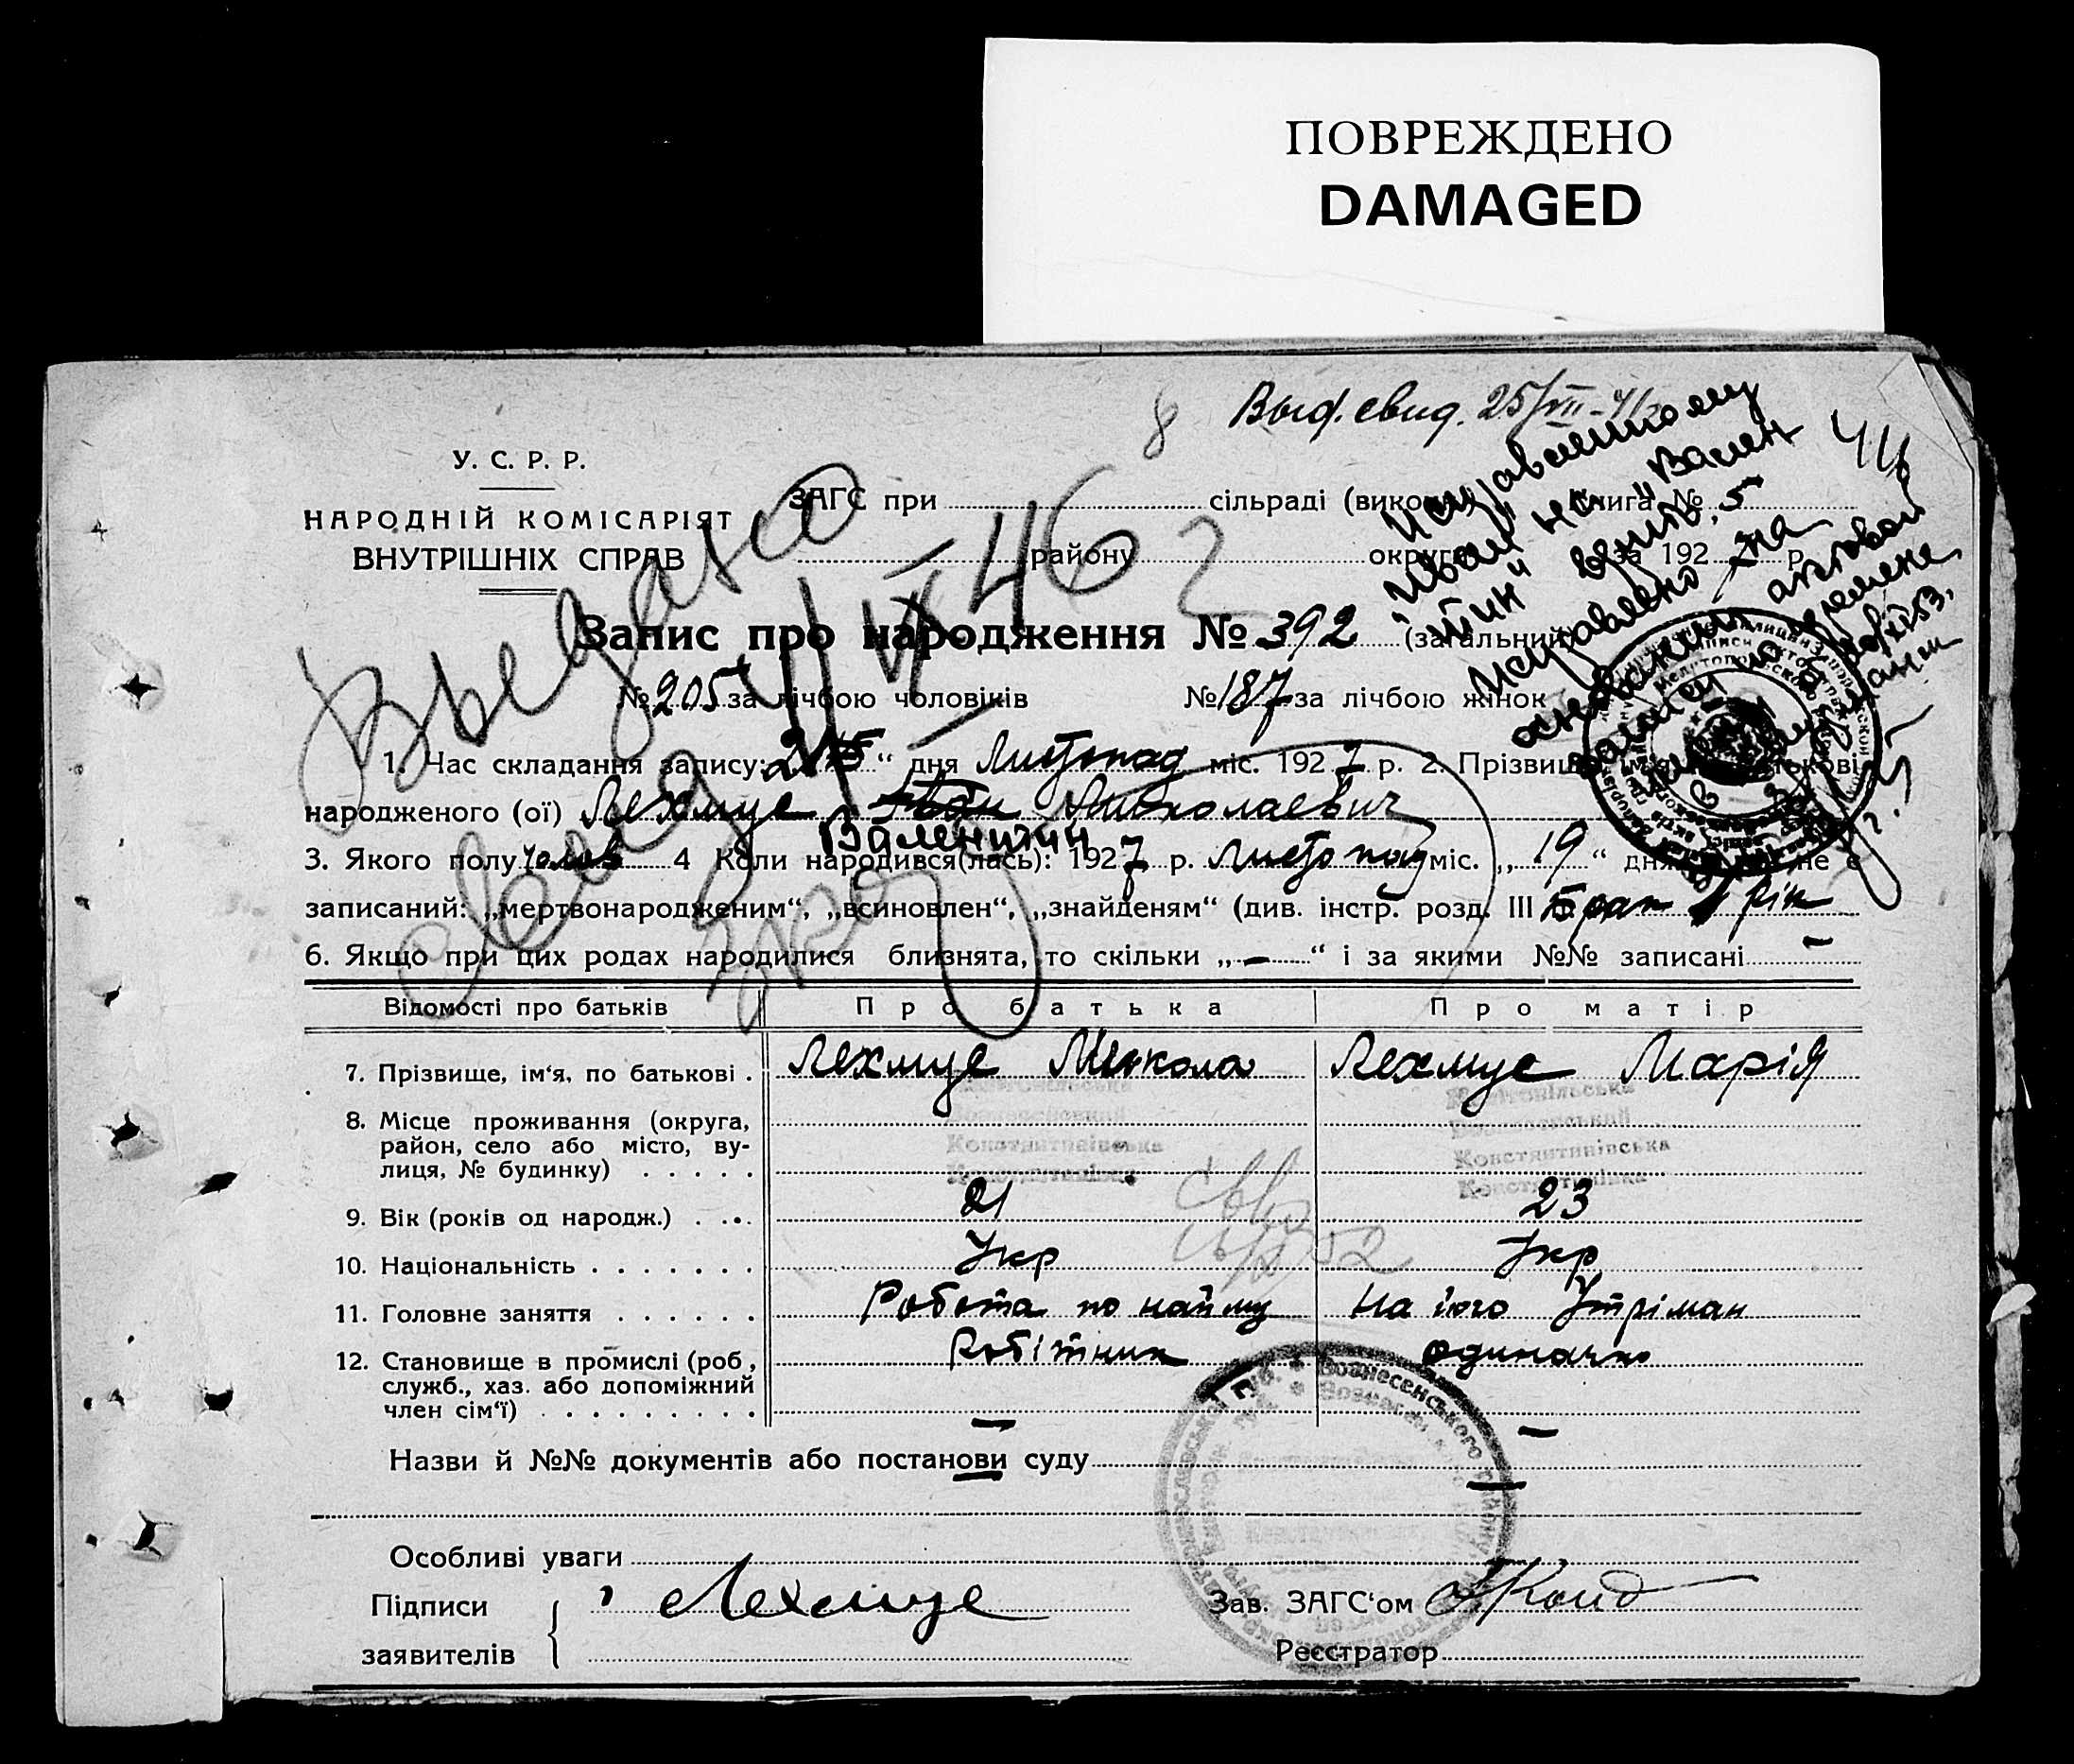 ПОВРЕЖДЕНО
DAMAGED
Выд. свид. 25/VII-41
У. С. Р. Р.
НАРОДНІЙ КОМІСАРІЯТ
ВНУТРІШНІХ СПРАВ
ЗАГС при сільраді (викон Книга № 5
району округи за 1927 р.
Исправленному
"Иван" на "Вален
тин" верить
Исправлено на
основании актовой
записи о перемене
Выдано
46 г
Запис про народження № 392 (загальний)
№ 205 за лічбою чоловіків № 187 за лічбою жінок
1. Час складання запису: „ “ дня Листопад міс. 1927 р. 2. Прізвищ
народженого (ої) Лехмус Іван Миколаевич
Валентин
3. Якого полу чолов 4 Коли народився(лась): 1927 р. Листопад міс. „19“ дня не є
записаний: „мертвонародженим“, „всиновлен“, „знайденям“ (див. інстр. розд. III Брак 1 рік
6. Якщо при цих родах народилися близнята, то скільки „-“ і за якими №№ записані -
Відомості про батьків Про батька Про матір
7. Прізвище, ім'я, по батькові . Лехмус Микола Лехмус Марія
8. Місце проживання (округа,
район, село або місто, ву-
лиця, № будинку) . . . . .
Константинівська Константинівська
9. Вік (років од народж.) . . . 21 23
10. Національність . . . . . . . Укр Укр
11. Головне заняття . . . . . . Робота по найму На його Утріман
12. Становище в промислі (роб,
служб., хаз. або допоміжний
член сім'ї) . . . . . . . . .
Робітник одиначно
- -
Назви й №№ документів або постанови суду -
Особливі уваги
Підписи
заявителів
Лехмус
Зав. ЗАГС'ом
Реєстратор
Вознесенського